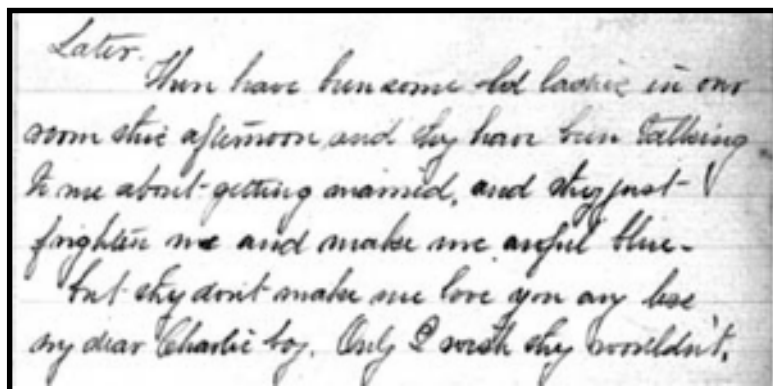 Later.
There have been some old ladies in our
room this afternoon and they have been talking
to me about getting married, and they just
frighten me and make me awful blue-
but they don't make me love you any less
my dear Charlie boy. Only I wish they wouldn't.